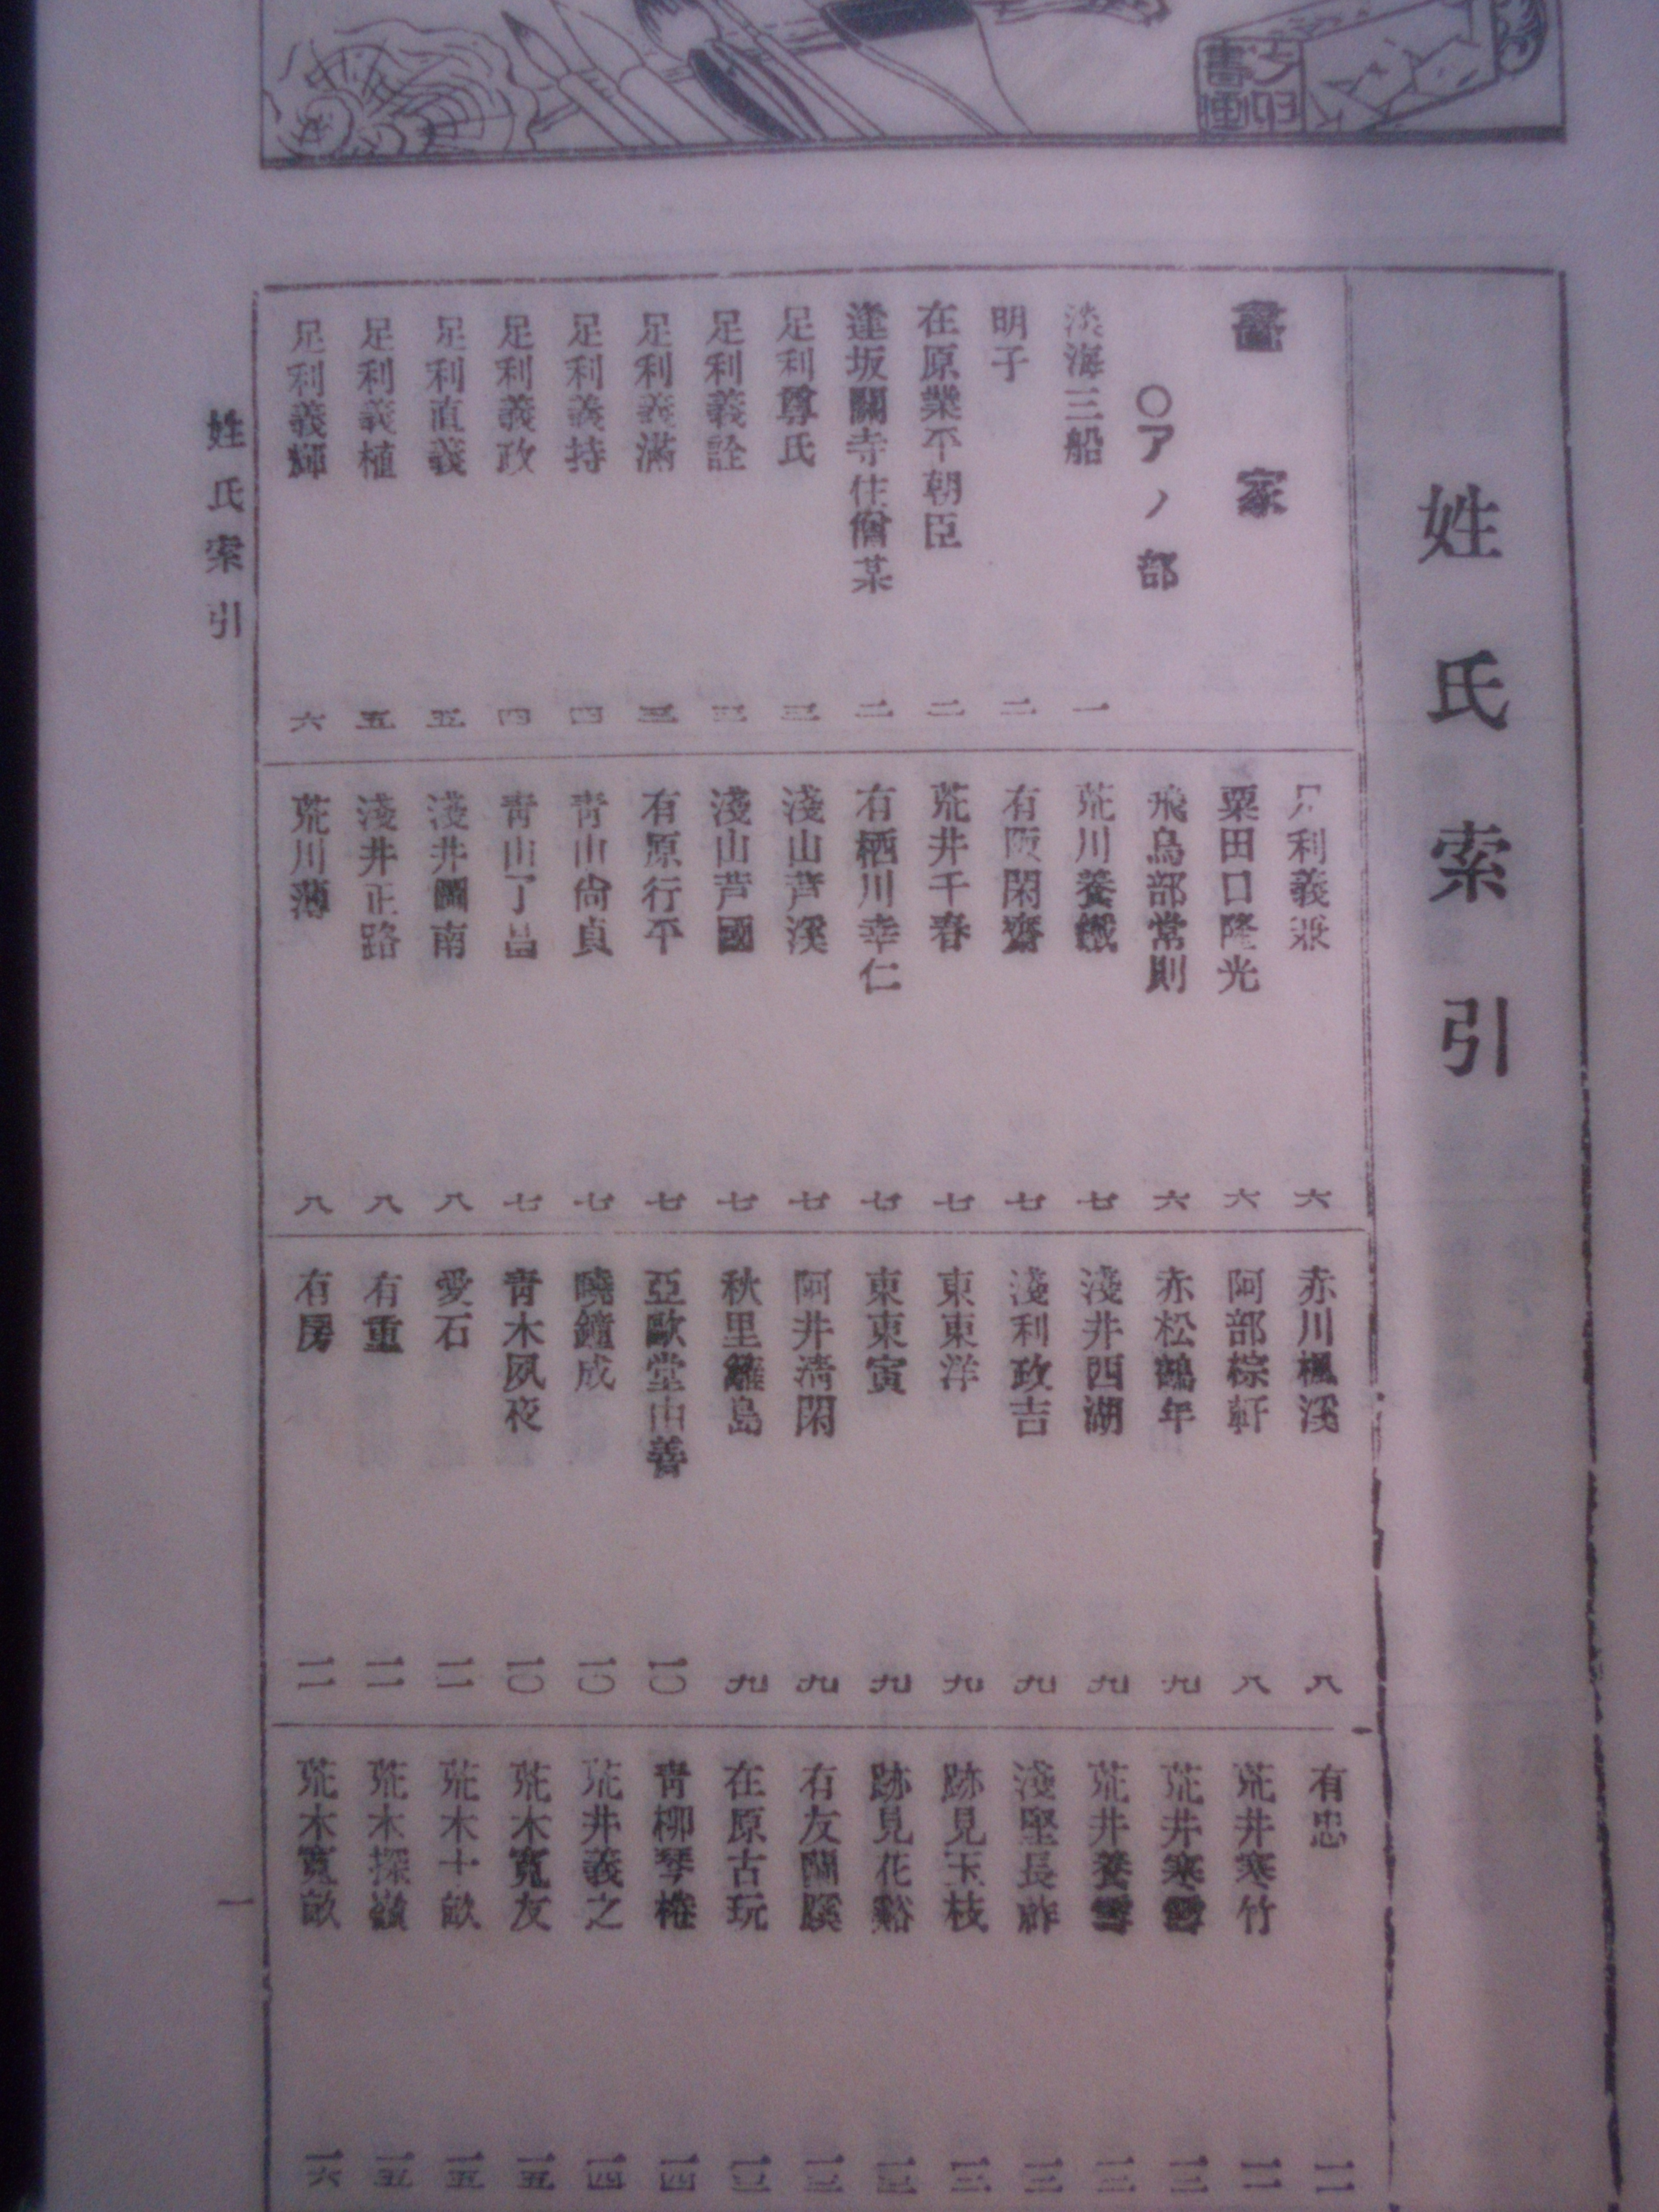 姓氏索引
畫家
〇アノ部
淡海三船 一
明子 二
在原業平朝臣 二
逢坂關寺住僧某 二
足利尊氏 三
足利義詮 三
足利義滿 三
足利義持 四
足利義政 四
足利直義 五
足利義植 五
足利義輝 六
足利義兼 六
粟田口隆光 六
飛鳥部常則 六
荒川養 七
有阪閑齋 七
荒井千春 七
有栖川幸仁 七
淺山芦溪 七
淺山芦國 七
有原行平 七
靑山尙貞 七
靑山丁 七
淺井圖南 八
淺井正路 八
荒川薄 八
赤川楓溪 八
阿部棕軒 八
赤松鶴年 九
淺井西湖 九
淺利政吉 九
東東洋 九
東東寅 九
阿井淸閑 九
秋里籬島 九
亞歐堂田善 一〇
曉鐘成 一〇
靑木夙夜 一〇
愛石 一一
有重 一一
有房 一一
有忠 一一
荒井寒竹 一二
荒井寒 一三
荒井養 一三
淺堅長 一三
跡見玉枝 一三
跡見花谿 一三
右友蘭 一三
在原古玩
靑柳琴 一四
荒井義之 一四
荒木寬友 一五
荒木十畝 一五
荒木探 一五
荒木寬畝 一六
姓氏索引
一